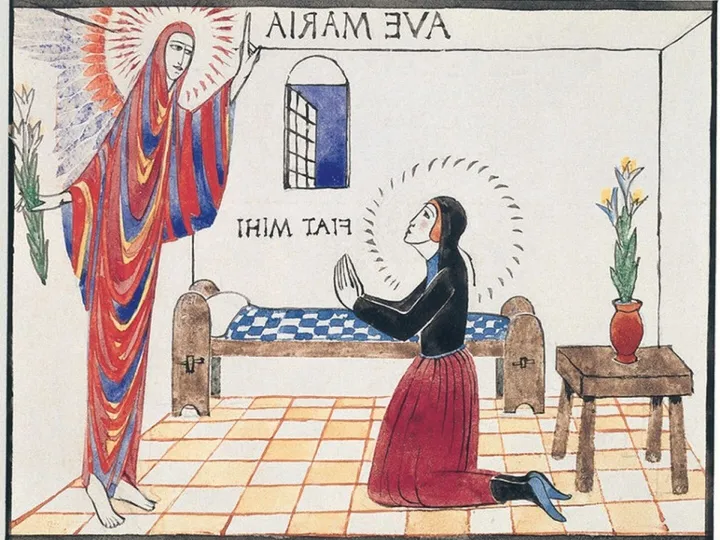 AVE MARIA
FIAT MIHI